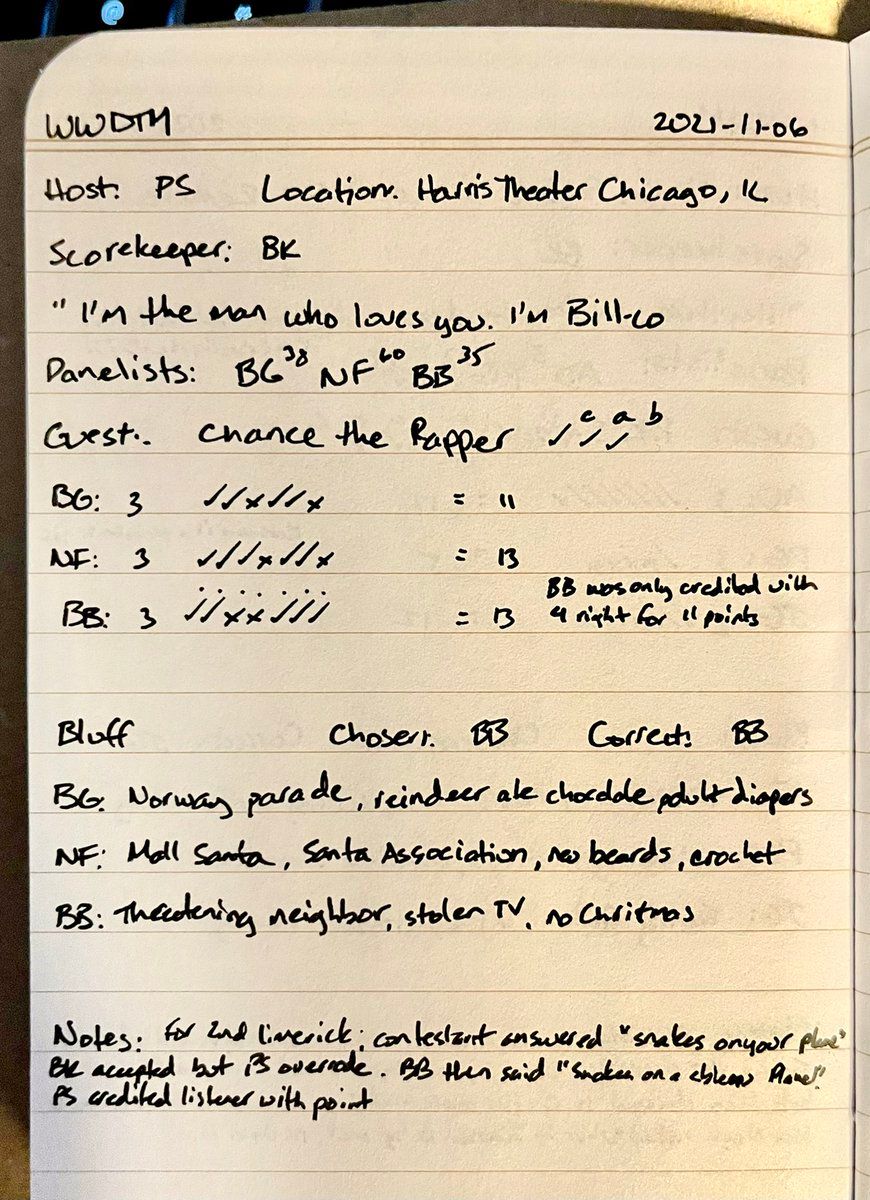 WWDTM 2021-11-06
Host: PS Location: Harris Theater Chicago, IL
Scorekeeper: BK
"I'm the man who loves you. I'm Bill-co
Panelists: BG 38 NF 60 BB 35
Guest: Chance the Rapper ✓ ✓ ✓ c a b
BG: 3 ✓✓x✓✓x = 11
NF: 3 ✓✓✓x✓✓x = 13
BB: 3 ✓✓xx✓✓✓ = 13 BB was only credited with
4 right for 11 points
Bluff Chosen: BB Correct: BB
BG: Norway parade, reindeer ate chocolate, adult diapers
NF: Mall Santa, Santa Association, no beards, crochet
BB: Threatening neighbor, stolen TV, no Chritmas
Notes: For 2nd limerick; contestant answered "snakes on your plane"
BK accepted but PS overrode. BB then said "Snakes on a Plane!"
PS credited listener with point